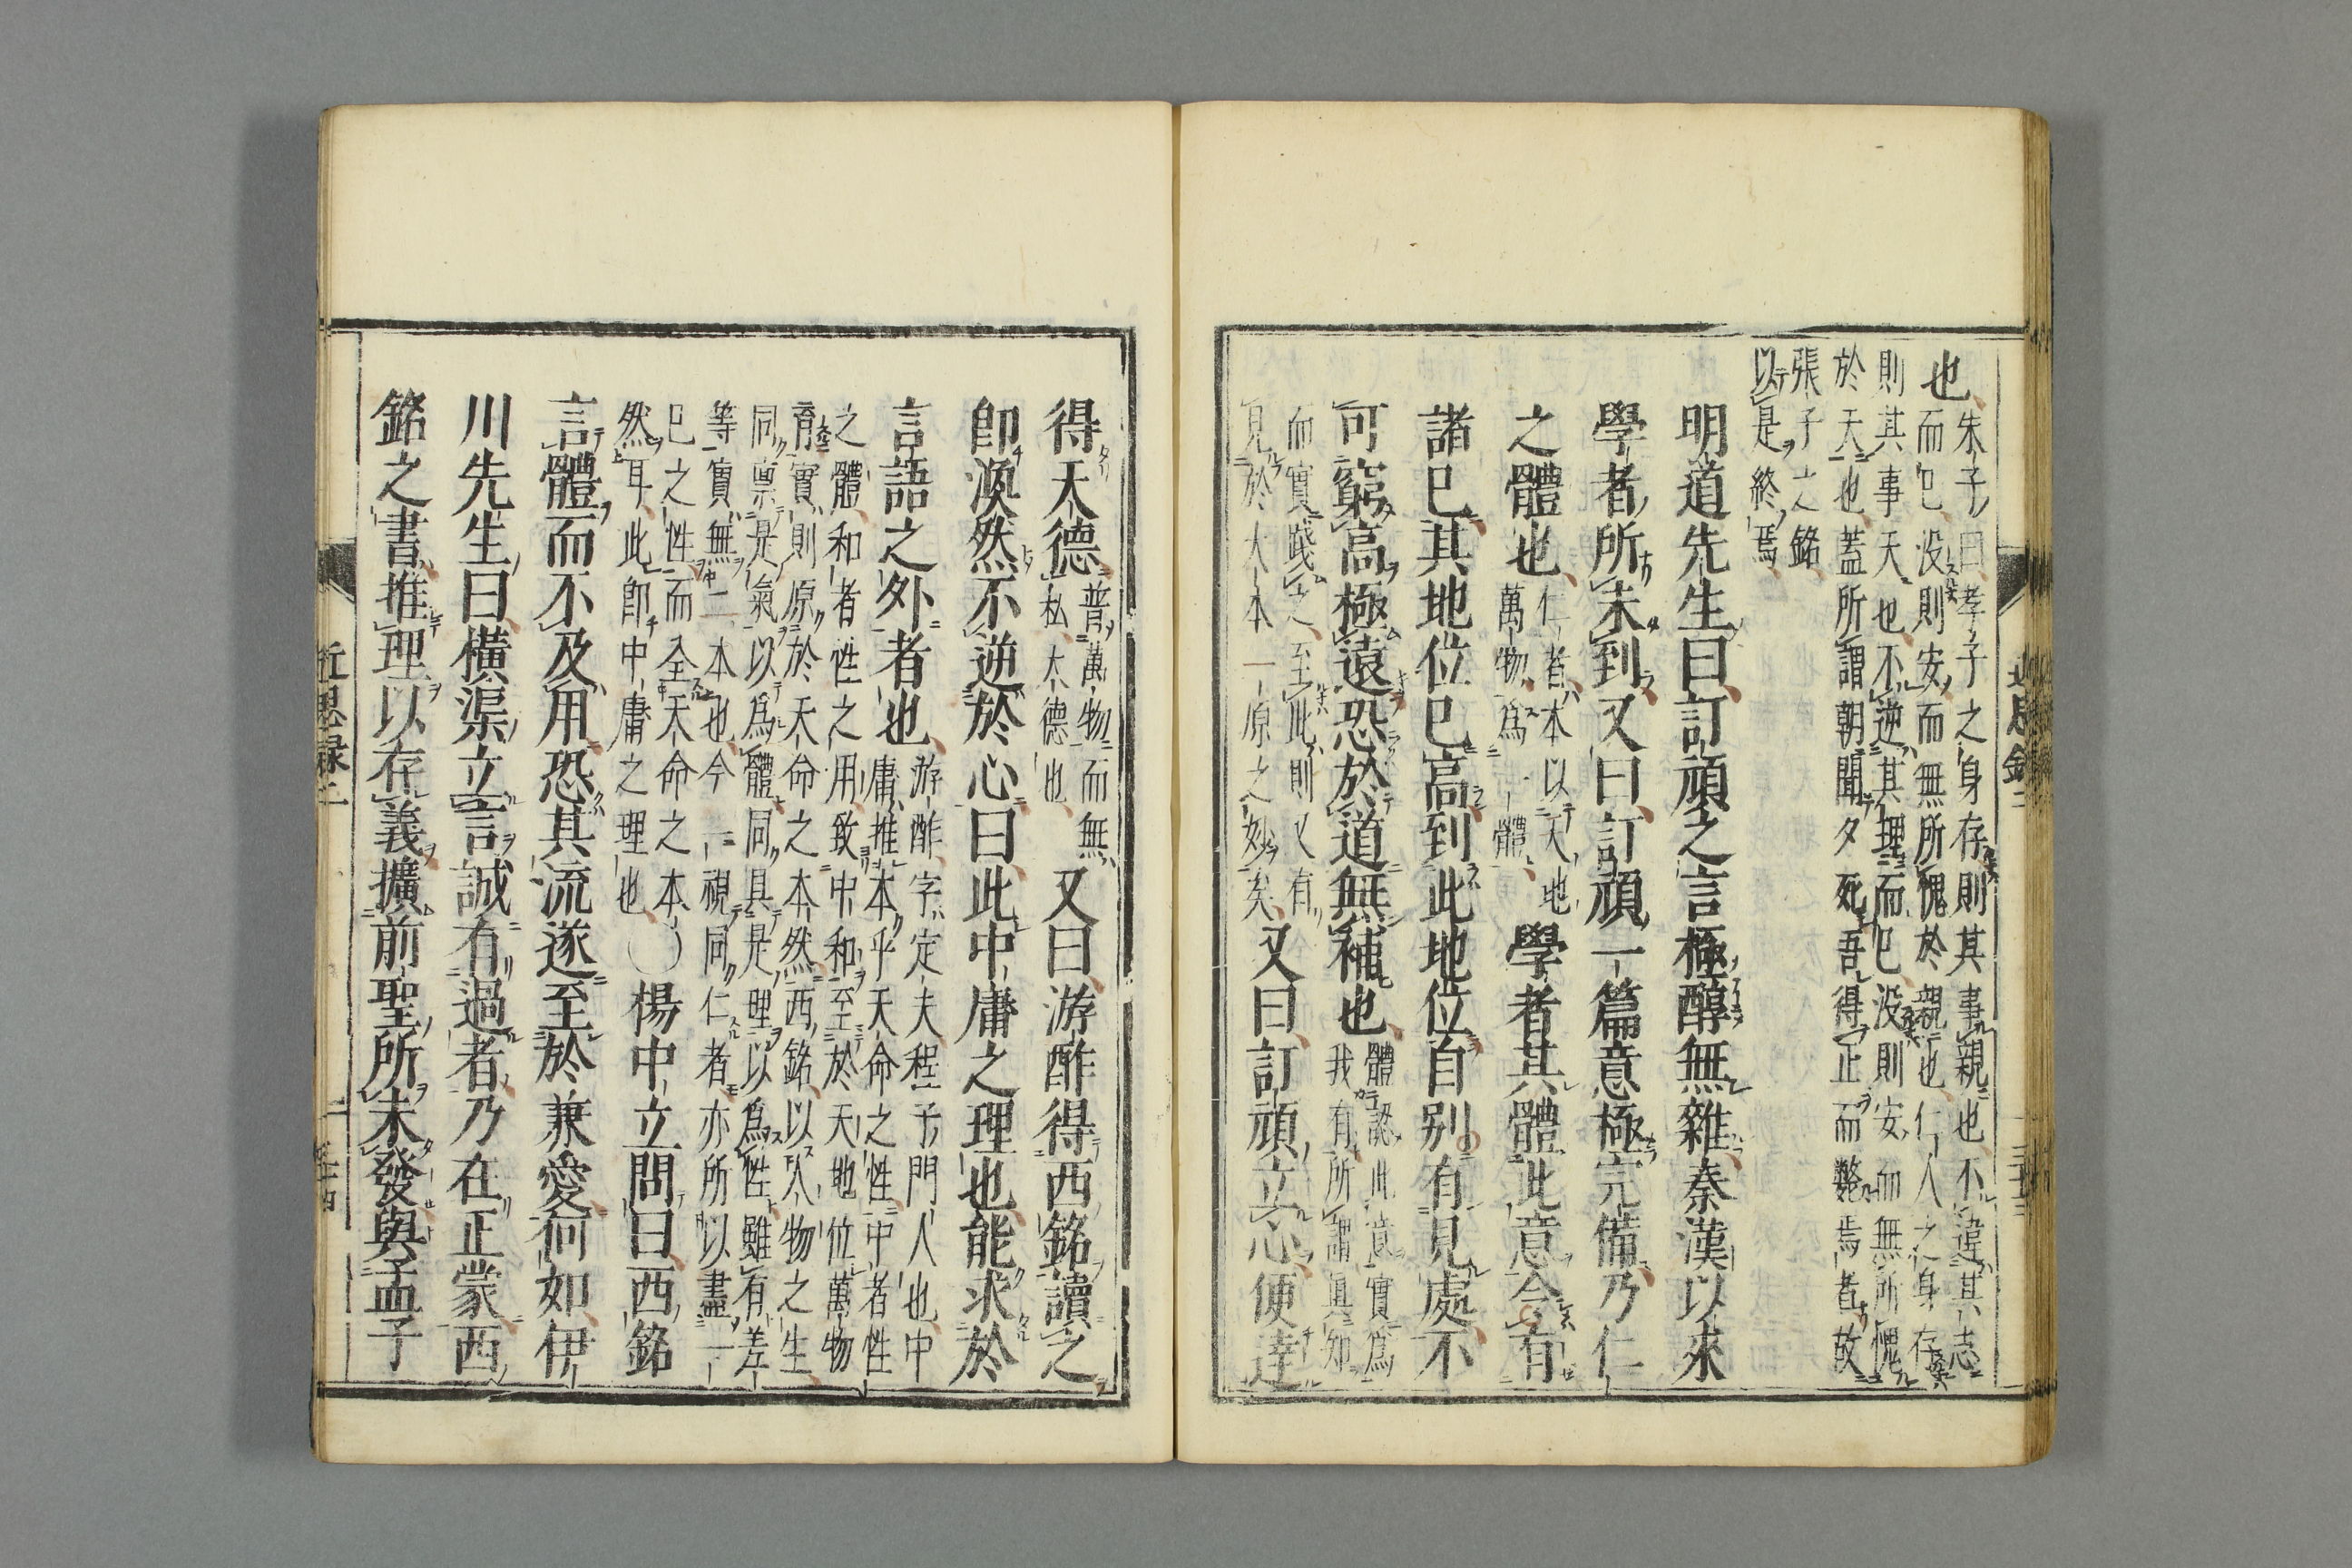 也朱子曰孝子之身存則其事親也不違其志
而已没則安而無所愧於親也仁人之身存
則其事天也不逆其理而已没則安而無所愧
於天也蓋所謂朝聞夕死吾得正而斃焉者故
張子之銘
以是終焉
明道先生曰訂頑之言極醇無雜秦漢以來
學者所未到又曰訂頑一篇意極完備乃仁
之體也
仁者本以天地
萬物爲一體
學者其體此意令有
諸已其地位已高到此地位自别有見處不
可窮高極遠恐於道無補也
體認此意實爲
我有所謂眞知
而實踐之至此則又有
見於大本一原之妙矣
又曰訂頑立心便達
得天德
普萬物而無
私天德也
又曰游酢得西銘讀之
卽渙然不逆於心曰此中庸之理也能求於
言語之外者也
游酢字定夫程子門人也中
庸推本乎天命之性中者性
之體和者性之用致中和至於天地位萬物
育實則原於天命之本然西銘以人物之生
同禀是氣以爲體同具是理以爲性雖有差
等實無二本也今一視同仁者亦所以盡一
已之性而全天命之本
然耳此卽中庸之理也
〇楊中立問曰西銘
言體而不及用恐其流遂至於兼愛何如伊
川先生曰橫渠立言誠有過者乃在正蒙西
銘之書推理以存義擴前聖所未發與孟子
近思録二